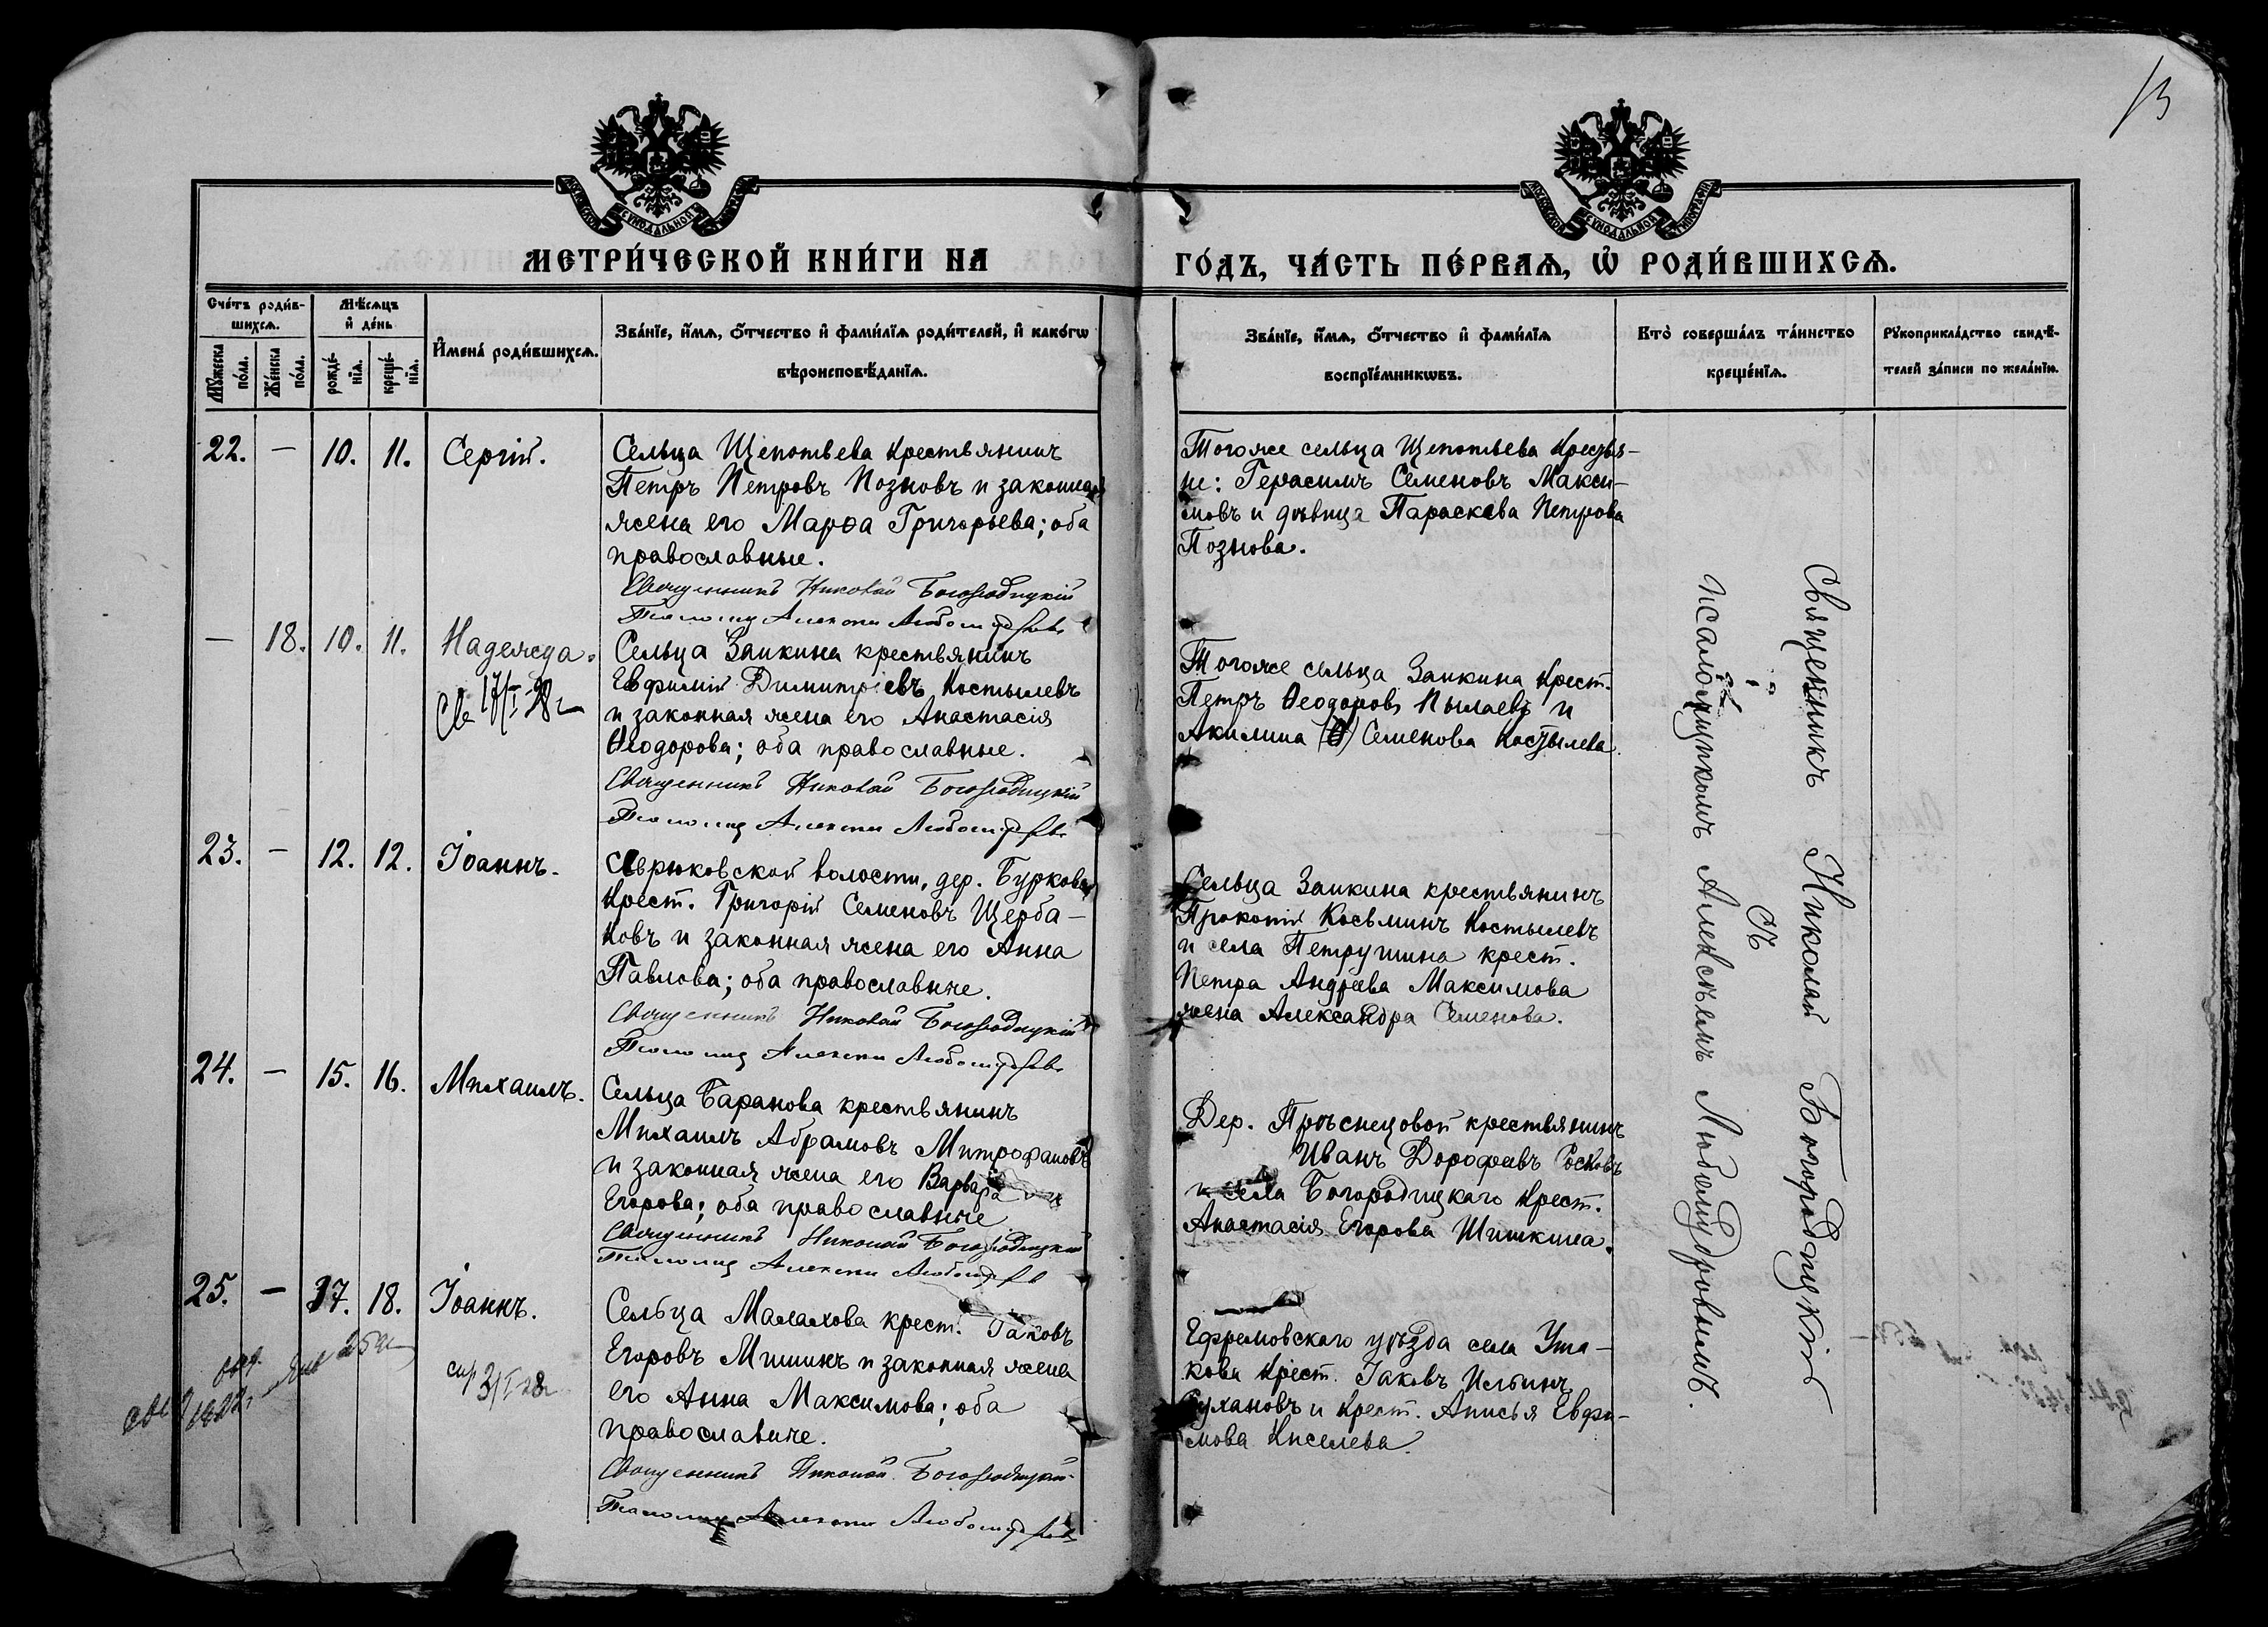 13
МОСКОВСКОЙ СѴНОДАЛЬНОЙ ТИПОГРАФІИ
МОСКОВСКОЙ СѴНОДАЛЬНОЙ ТИПОГРАФІИ
МЕТРИ́ЧЕСКОЙ КНИ́ГИ НА
ГО́ДЪ, ЧА́СТЬ ПЕ́РВАѦ, Ѡ҆ РОДИ́ВШИХСѦ.
Сче́тъ роди́в-
шихсѧ.
Мѣ́сѧцъ
и҆ де́нь
Мꙋ́жеска по́ла.
Же́нска по́ла.
рожде́-
нїѧ.
креще́-
нїѧ.
И҆мена̀ роди́вшихсѧ.
Зва́нїе, и҆́мѧ, ѻ҆́тчество и҆ фамѝлїѧ роди́телей, и҆ како́гѡ
вѣроисповѣ́данїѧ.
Зва́нїе, и҆́мѧ, ѻ҆́тчество и҆ фамѝлїѧ
воспрїе́мникѡвъ.
Кто̀ соверша́лъ та́инство
креще́нїѧ.
Рꙋкоприкла́дство свидѣ́-
телей за́писи по жела́нїю.
22. — 10. 11. Сергій.
Сельца Щепотьева крестьянинъ
Петръ Петровъ Позновъ и законная
жена его Марѳа Григорьева; оба
православные.
Священникъ Николай Богородицкій
Псаломщ Алексѣй Любомудровъ
Тогоже сельца Щепотьева Крестья-
не: Герасимъ Семеновъ Макси-
мовъ и дѣвица Параскева Петрова
Познова.
— 18. 10. 11. Надежда.
Сельца Заикина крестьянинъ
Евфимій Димитріевъ Костылевъ
и законная жена его Анастасія
Ѳеодорова; оба православные.
Священникъ Николай Богородицкій
Псаломщ Алексѣй Любомудровъ
Тогоже сельца Заикина Крест.
Петръ Ѳеодоровъ Пылаевъ и
Акилина Семенова Костылева.
23. — 12. 12. Іоаннъ.
волости, дер. Буркова
Крест. Григорій Семеновъ Щерба-
ковъ и законная жена его Анна
Павлова; оба православные.
Священникъ Николай Богородицкій
Псаломщ Алексѣй Любомудровъ
Сельца Заикина крестьянинъ
Прокопій Косьминъ Костылевъ
и села Петрушина крест.
Петра Андреева Максимова
жена Александра Семенова.
24. — 15. 16. Михаилъ.
Сельца Баранова крестьянинъ
Михаилъ Абрамовъ Митрофановъ
и законная жена его Варвара
Егорова; оба православные
Священникъ Николай Богородицкій
Псаломщ Алексѣй Любомудровъ
Дер. крестьянинъ
Иванъ Дорофеевъ
и села Богородицкаго Крест.
Анастасія Егорова Шишкина.
25. — 17. 18. Іоаннъ.
Сельца Малахова крест. Іаковъ
Егоровъ Мишинъ и законная жена
его Анна Максимова; оба
православные.
Священникъ Николай Богородицкій
Псаломщ Алексѣй Любомудровъ
Ефремовскаго уѣзда села Уша-
кова Крест. Іаковъ Ильинъ
Сухановъ и Крест. Анисья Евфи-
мова Киселева.
Священникъ Николай Богородицкій
съ
псаломщикомъ Алексѣемъ Любомудровымъ.